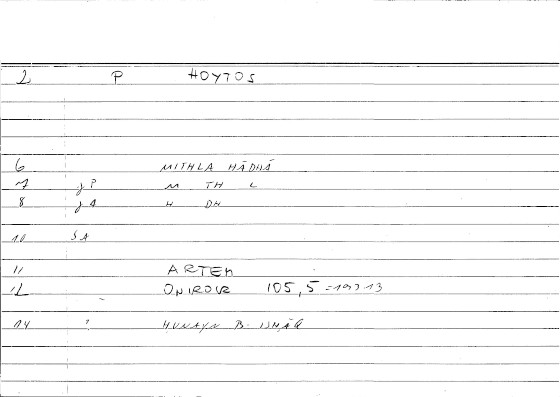 2 P HOYTOS
6 MITHLA HĀDHĀ
7 gP M TH L
8 gA H DH
10 SA
11 ARTEM
12 ONIROCR 105,5 = 197 13
14 ? HUNAYN B. ISḤĀQ